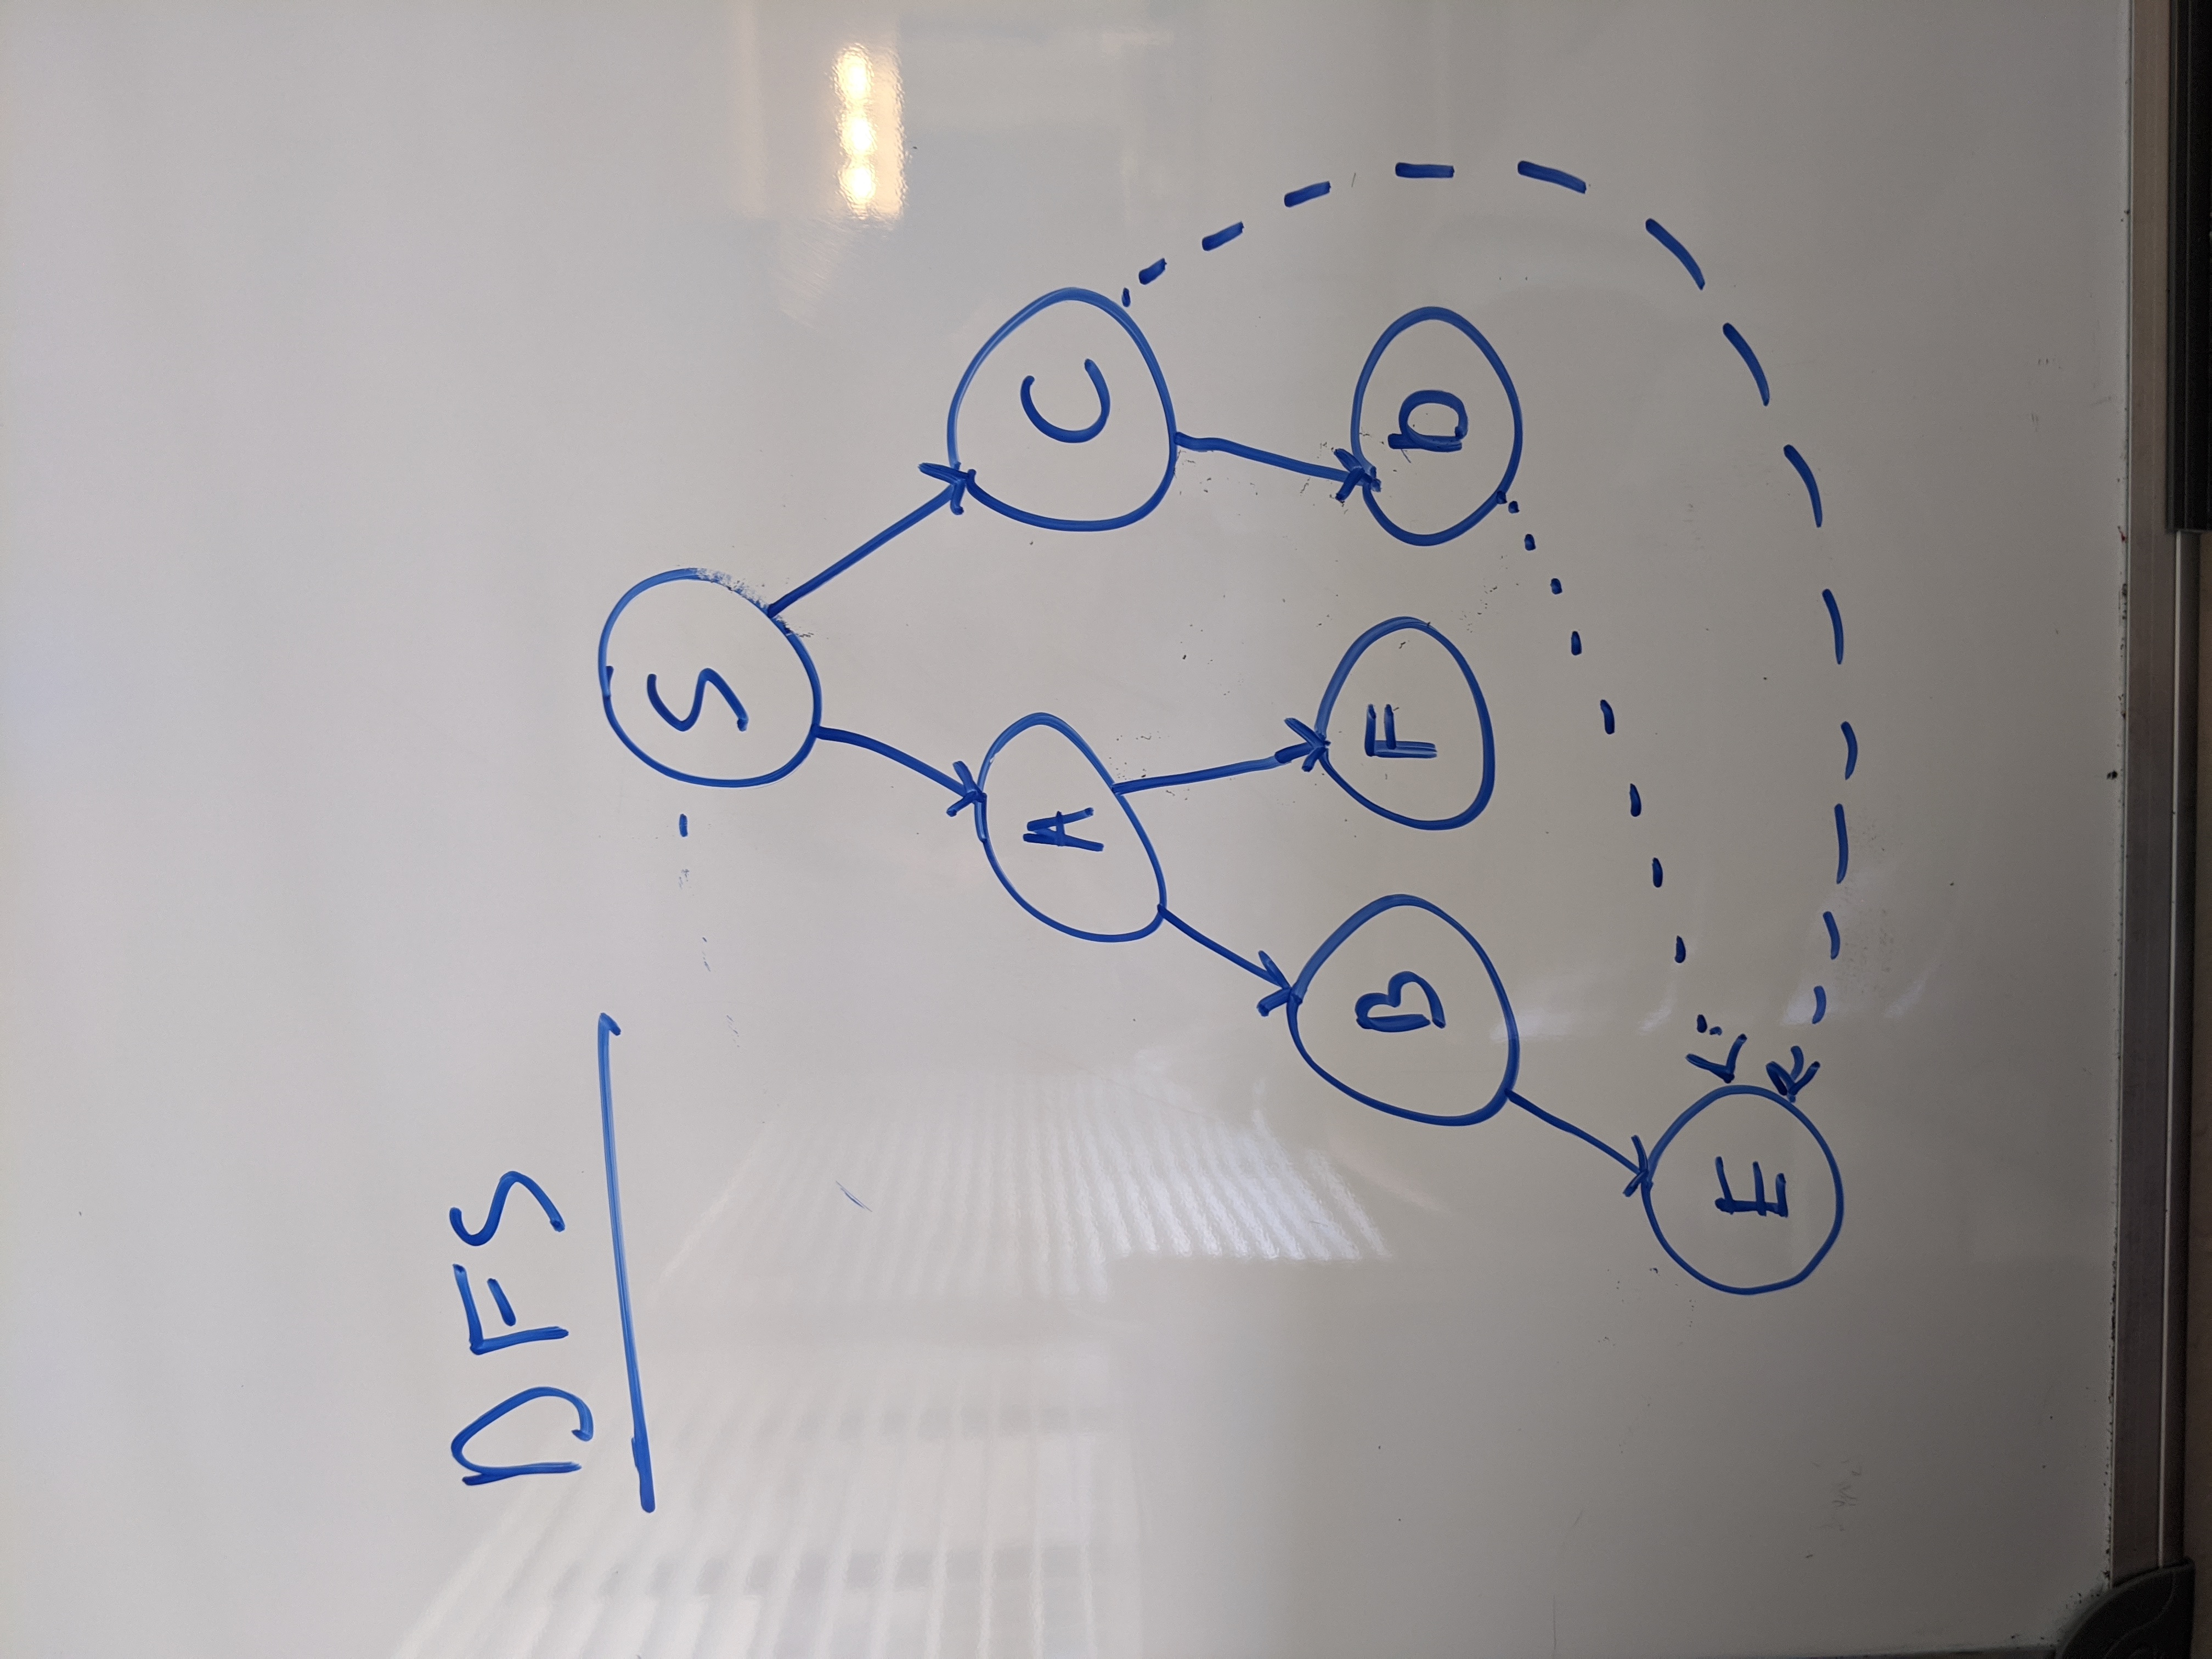 DFS
S
A
C
B
F
D
E